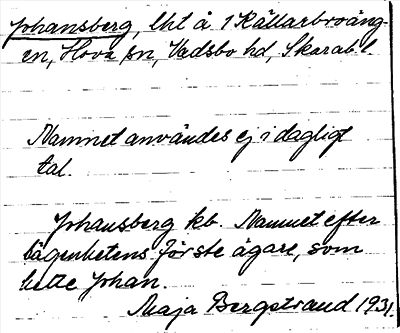 Johansberg, lht å 1 Källarbroäng-
en, Hova sn, Vadsbo hd, Skarab. l.
Namnet användes ej i dagligt
tal.
Johansberg kb. Namnet efter
lägenhetens förste ägare, som
hette Johan.
Maja Bergstrand 1931.